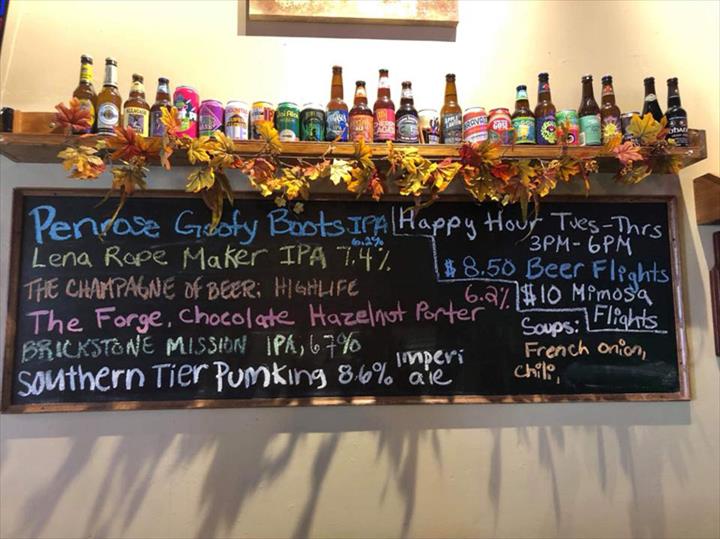 Penrose Goofy Boots IPA 6.2%
Lena Rope Maker IPA 7.4%
THE CHAMPAGNE OF BEER: HIGHLIFE
The Forge, Chocolate Hazelnut Porter 6.2%
BRICKSTONE MISSION IPA, 6.7%
Southern Tier Pumking 8.6% imperi ale
Happy Hour Tues-Thrs
3PM-6PM
$8.50 Beer Flights
$10 Mimosa
Flights
Soups:
French onion,
Chili,